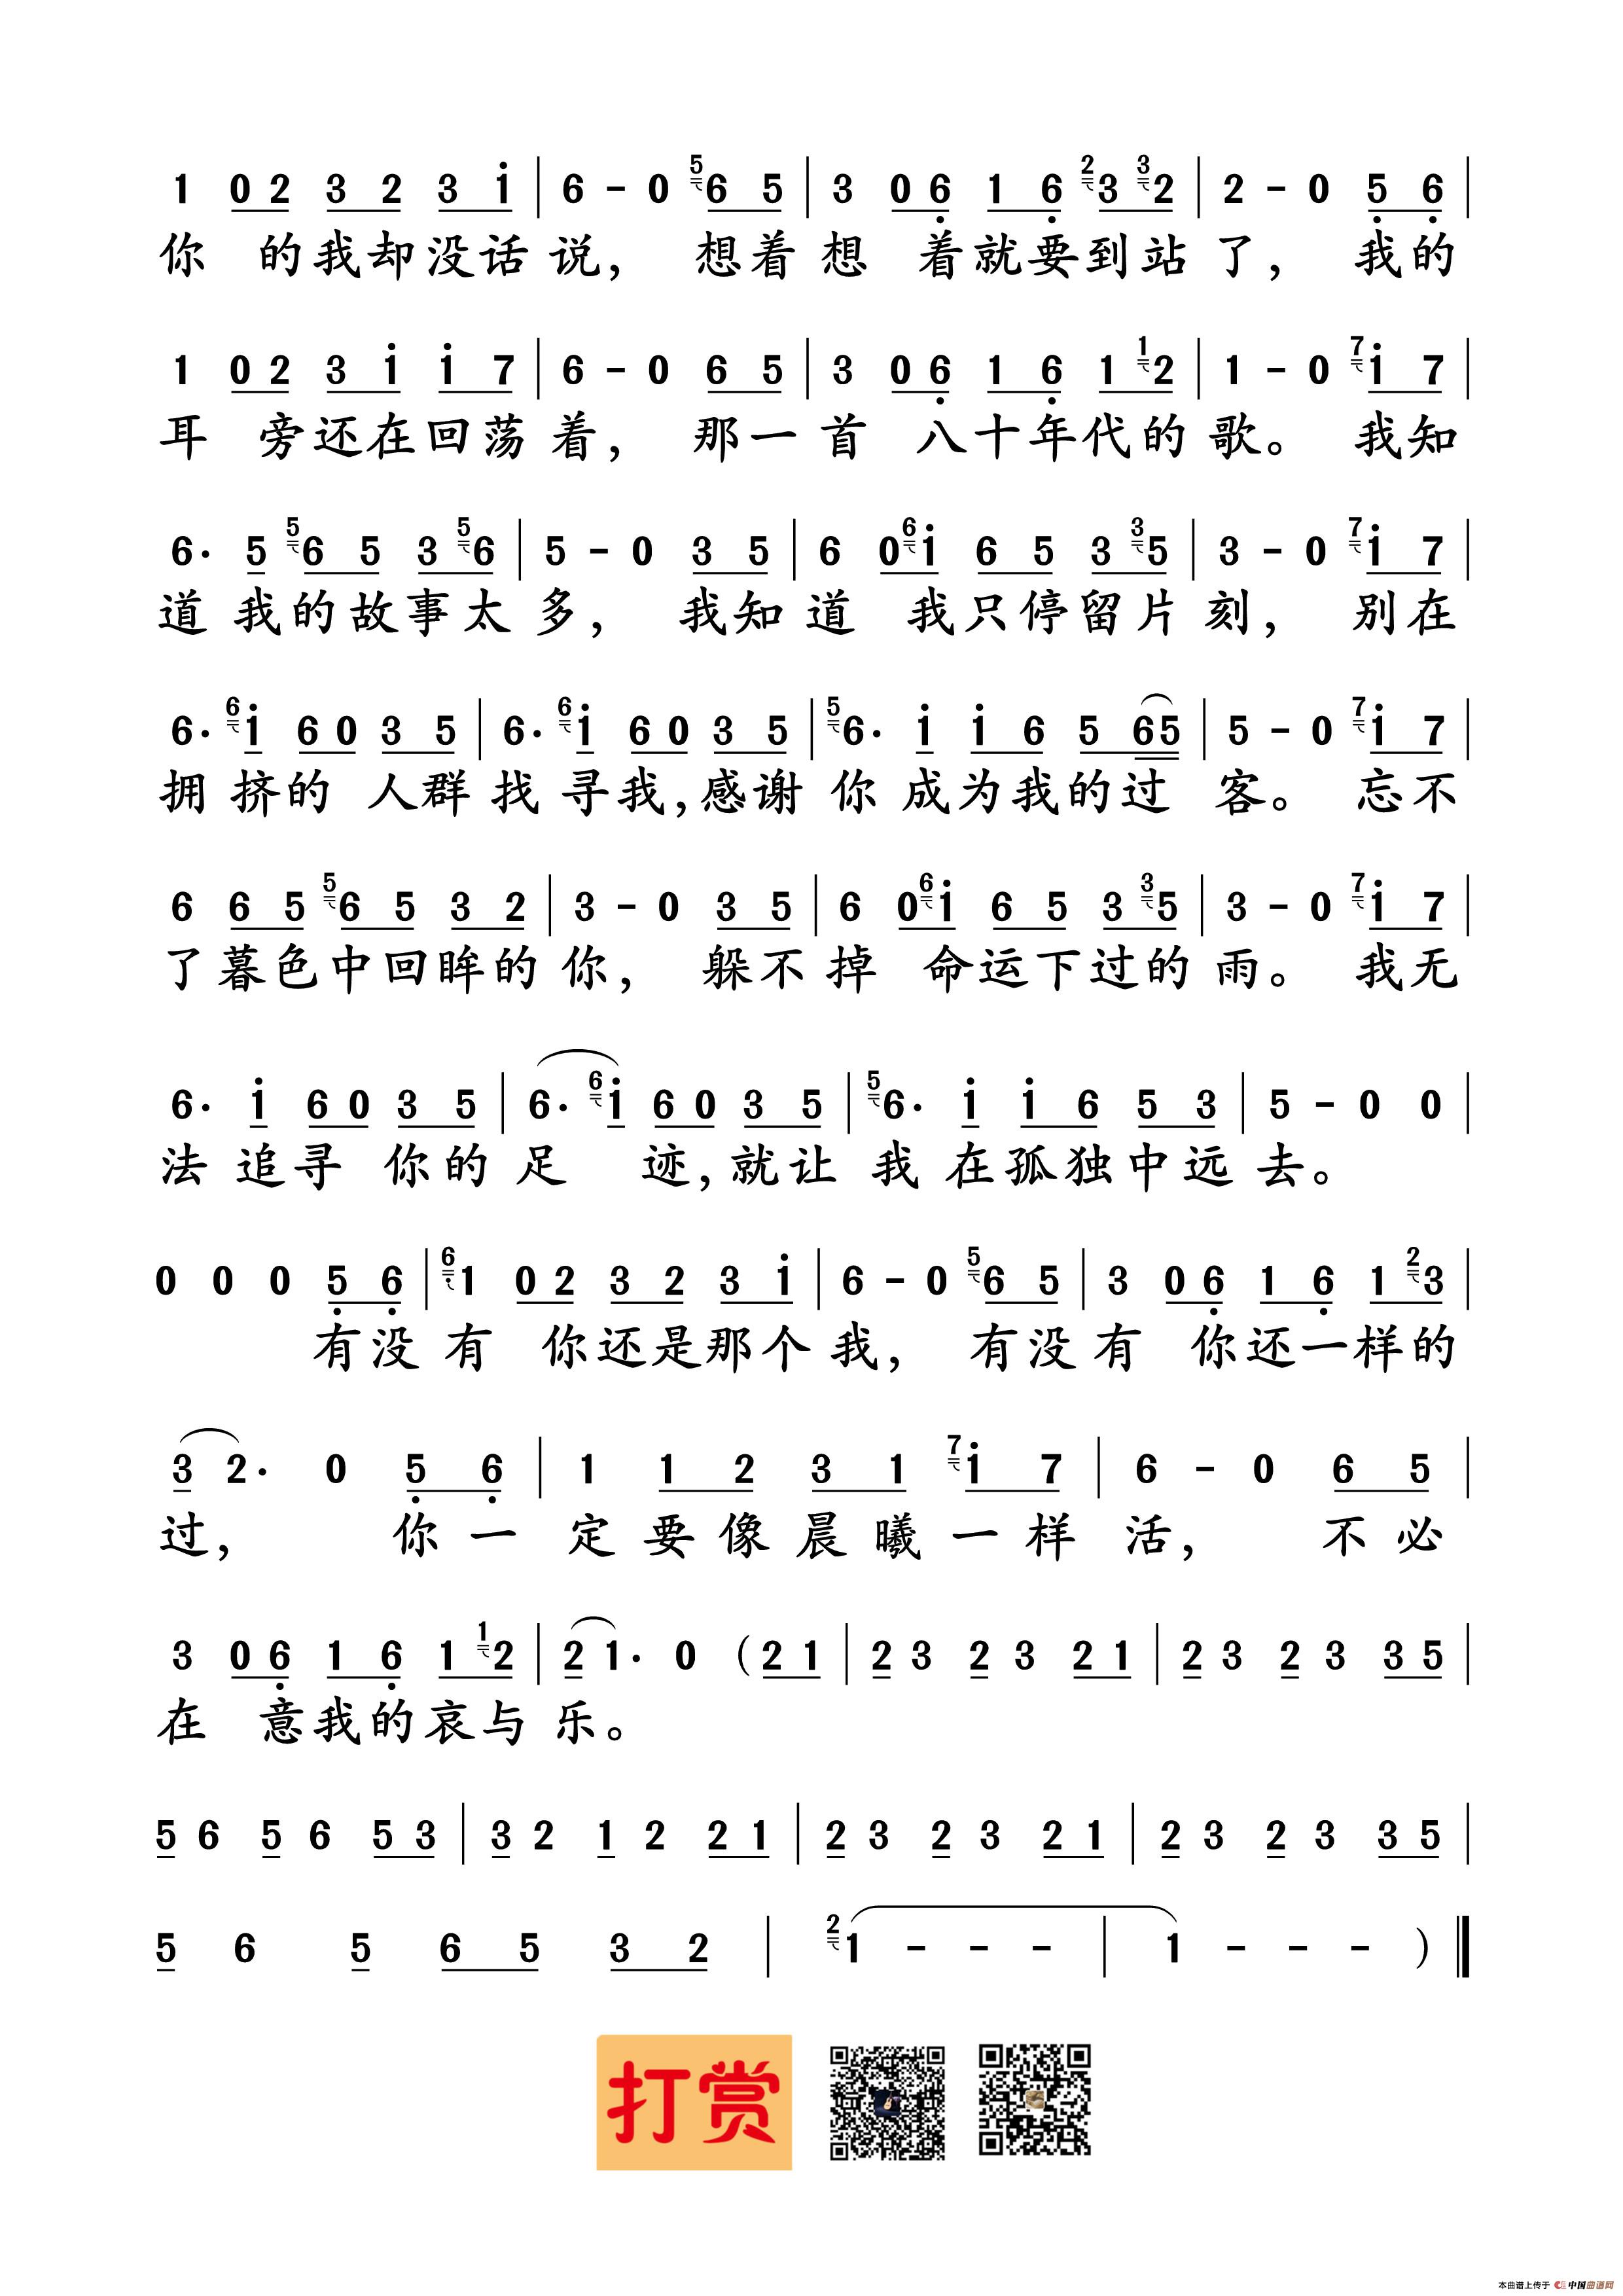 1 02 3 2 3 i | 6 - 0 5 6 5 | 3 06 1 6 2 3 3 2 | 2 - 0 5 6 |
你 的我却没话说， 想着想 着就要到站了， 我的
1 02 3 i i 7 | 6 - 0 6 5 | 3 06 1 6 1 1 2 | 1 - 0 7 i 7 |
耳 旁还在回荡着， 那一首 八十年代的歌。 我知
6· 5 5 6 5 3 5 6 | 5 - 0 3 5 | 6 0 6 i 6 5 3 3 5 | 3 - 0 7 i 7 |
道 我的故事太多， 我知道 我只停留片刻， 别在
6· 6 i 60 3 5 | 6· 6 i 60 3 5 | 5 6· i i 6 5 65 | 5 - 0 7 i 7 |
拥挤的 人群找寻我，感谢你成为我的过客。 忘不
6 6 5 5 6 5 3 2 | 3 - 0 3 5 | 6 0 6 i 6 5 3 3 5 | 3 - 0 7 i 7 |
了暮色中回眸的你， 躲不掉 命运下过的雨。 我无
6· i 60 3 5 | 6· 6 i 60 3 5 | 5 6· i i 6 5 3 | 5 - 0 0 |
法追寻 你的足 迹，就让我在孤独中远去。
0 0 0 5 6 | 6 1 02 3 2 3 i | 6 - 0 5 6 5 | 3 06 1 6 1 2 3 |
有没有 你还是那个我， 有没有 你还一样的
3 2· 0 5 6 | 1 1 2 3 1 7 i 7 | 6 - 0 6 5 |
过， 你一定要像晨曦一样活， 不必
3 06 1 6 1 1 2 | 2 1· 0 (21 | 2 3 2 3 21 | 2 3 2 3 35 |
在 意我的哀与乐。
5 6 5 6 53 | 3 2 1 2 21 | 2 3 2 3 21 | 2 3 2 3 35 |
5 6 5 6 5 3 2 | 2 1 - - - | 1 - - - )
打赏
本曲谱上传于 中国曲谱网